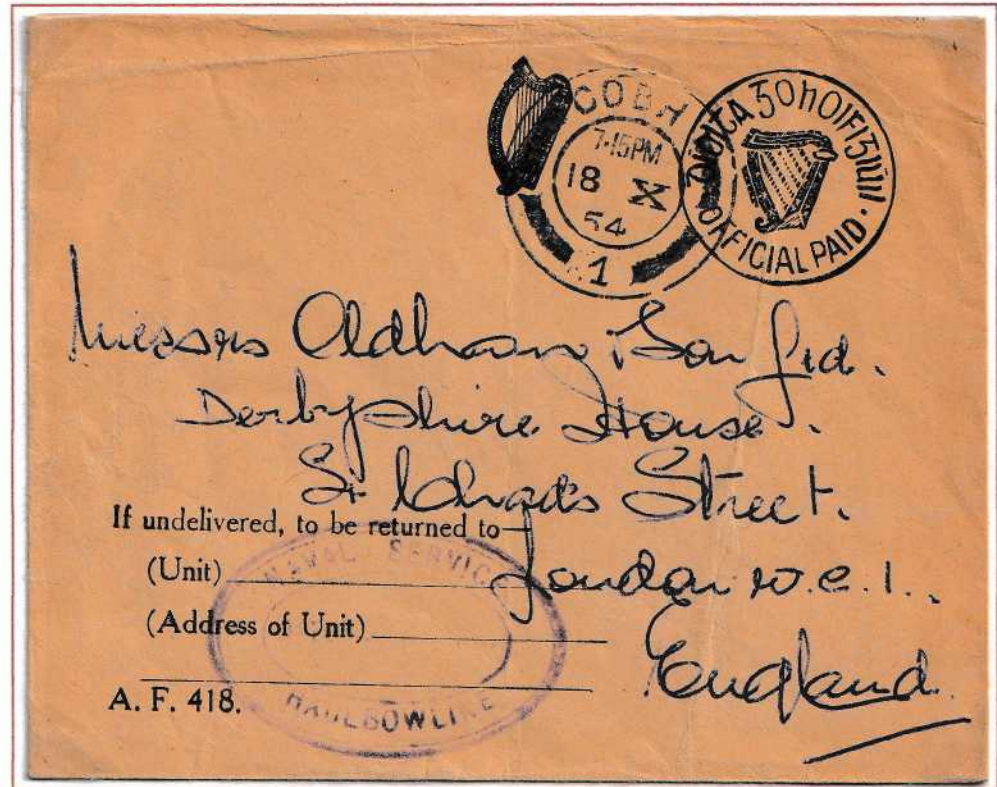 COBH
7-15PM
18 X
54
1
ÍOCTA GO hOIFIGIÚIL · OFFICIAL PAID ·
Messrs Oldham & Son Ltd.
Derbyshire House.
St. Chad's Street.
London W.C.1.
England.
If undelivered, to be returned to—
(Unit)
(Address of Unit)
A. F. 418.
NAVAL SERVICE
HAULBOWLINE